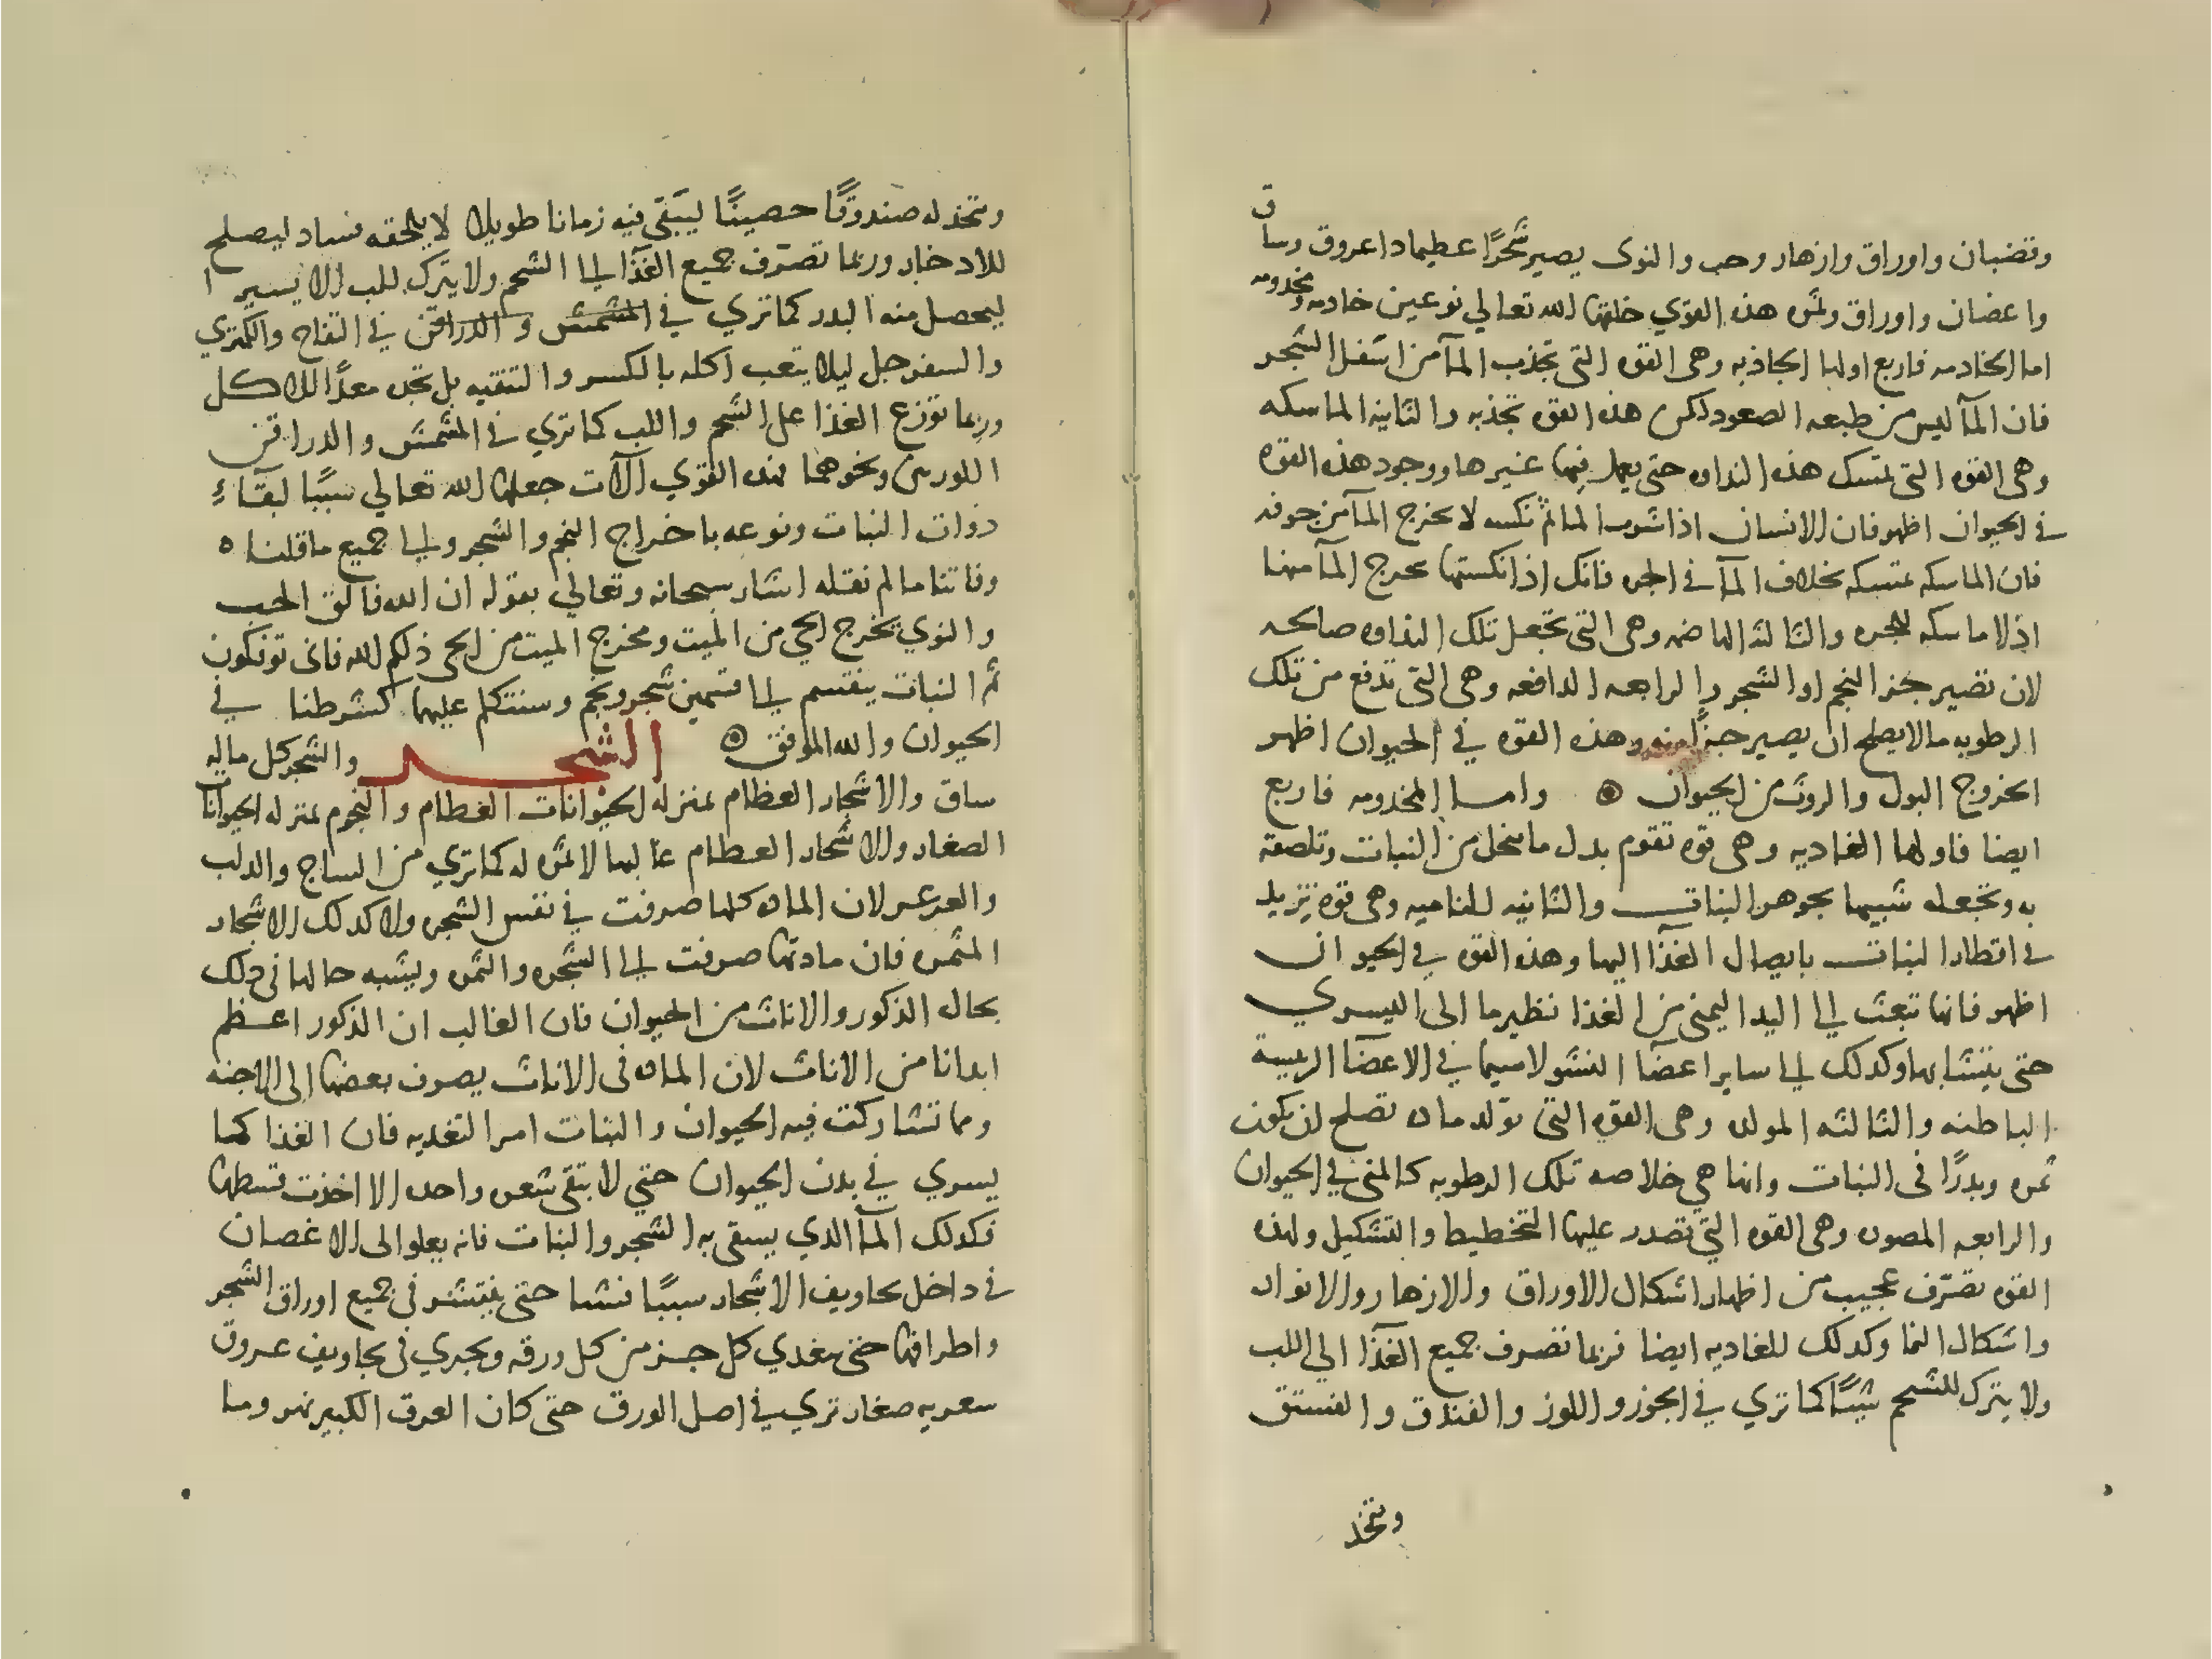 وقضبان واوراق وازهار وحب والنوى يصير شجرًا عظيما ذا عروق وساق
واغضان واوراق وثمره هذه القوي خلقها الله تعالي نوعين خادمه ومخدومه
اما الخادمه فاربع اولها الجاذبه وهى القوه التى تجذب المآ من اسفل الشجر
فان المآ ليس من طبعه الصعود لكن هذه القوه تجذبه والثانيه الماسكه
وهى القوه التى تمسك هذه النداوه حتى يعمل فيها غيرها ووجود هذه القوه
في الحيوان اظهر فان الانسان اذا شرب الما ثم نكسه لا يخرج المآ من جوفه
فان الماسكه تمسكه بخلاف المآ في الجره فانك اذا نكستها يخرج المآ منها
اذ لا ماسكه للجره والثالثه الهاضمه وهى التى تجعل تلك النداوه صالحه
لان تصير جز النجم او الشجر والرابعه الدافعه وهى التى تدفع من تلك
الرطوبه ما لا يصلح ان يصير جزًا منه وهذه القوه في الحيوان اظهر
الخروج البول والروث من الحيوان ۞ واما المخدومه فاربع
ايضا فاولها الغاديه وهى قوه تقوم بدل ما ينحل من النبات وتلصقه
به وتجعله شبيها بجوهر النبات والثانيه للناميه وهى قوه تزيد
في اقطار النبات بايصال الغذآ اليها وهذه القوه في الحيوان
اظهر فانها تبعث الي اليد اليمنى من الغذا نظير ما الى اليسري
حتى يتشابها وكدلك الي ساير اعضآ النشو لاسيما في الاعضآ الرييسة
الباطنه والثالثه المولده وهى القوه التى تولد ماده تصلح لان يكون
ثمره وبدرًا فى النبات وانها هي خلاصه تلك الرطوبه كالمنى في الحيوان
والرابعه المصوره وهى القوه التي تصدر عليها التخطيط والتشكيل ولهذه
القوه تصرّف عجيب من اظهار اشكال الاوراق والازهار والانوار
واشكال النما وكدلك للغاديه ايضا فربما تصرف جميع الغذآ الي اللب
ولا يترك للشحم شيًا كما تري في الجوز واللوز والفندق والفستق
وتتخذ
وتتخذ له صندوقًا حصينًا ليبقى فيه زمانا طويلا لا يلحقه فساد ليصلح
للادخار وربما تصرّف جميع الغذآ الي الشحم ولا يترك للب الا يسيرا
ليحصل منه البدر كما تري في المشمش والدراقن في التفاح والكمثري
والسفرجل ليلا يتعب اكله بالكسر والتنقيه بل تجده معدًا للاكل
وربما توزع الغذا على الشحم واللب كما تري في المشمش والدراقن
اللوزي ونحوهما فهذه القوي آلات جعلها الله تعالي سببًا لبقآء
ذوات النبات ونوعه باخراج النجم والشجر والي جميع ما قلناه
وفاتنا ما لم نقله اشار سبحانه وتعالي بقوله ان الله فالق الحب
والنوي يخرج الحي من الميت ومخرج الميت من الحى ذلكم الله فانى توفكون
ثم النبات ينقسم الي قسمين شجر ونجم وسنتكلم عليها كشرطنا في
الحيوان والله الموفق ۞ الشجر والشجر كل ماله
ساق والاشجار العظام بمنزله الحيوانات العظام والنجوم بمنزله الحيوانات
الصغار والاشجار العظام غالبها لا ثمره له كما تري من الساج والدلب
والعرعر لان الماده كلها صرفت في نفس الشجره ولا كدلك الاشجار
المثمره فان مادتها صرفت الي الشجره والثمره ويشبه حالها فى دلك
بحال الذكور والاناث من الحيوان فان الغالب ان الذكور اعظم
ابدانا من الاناث لان الماده فى الاناث يصرف بعضها الى الاجنه
ومما تشاركت فيه الحيوان والنبات امر التغديه فان الغذا كما
يسري في بدن الحيوان حتي لا يبقى شعره واحده الا اخذت قسطها
فكدلك المآ الذي يسقى به الشجر والنبات فانه يعلو الى الاغصان
في داخل تجاويف الاشجار سببًا فشيا حتى ينتشر فى جميع اوراق الشجر
واطرافها حتى يغدي كل جز من كل ورقه ويجري فى تجاويف عروق
سعريه صغار تري في اصل الورق حتى كان العرق الكبير نهر وما